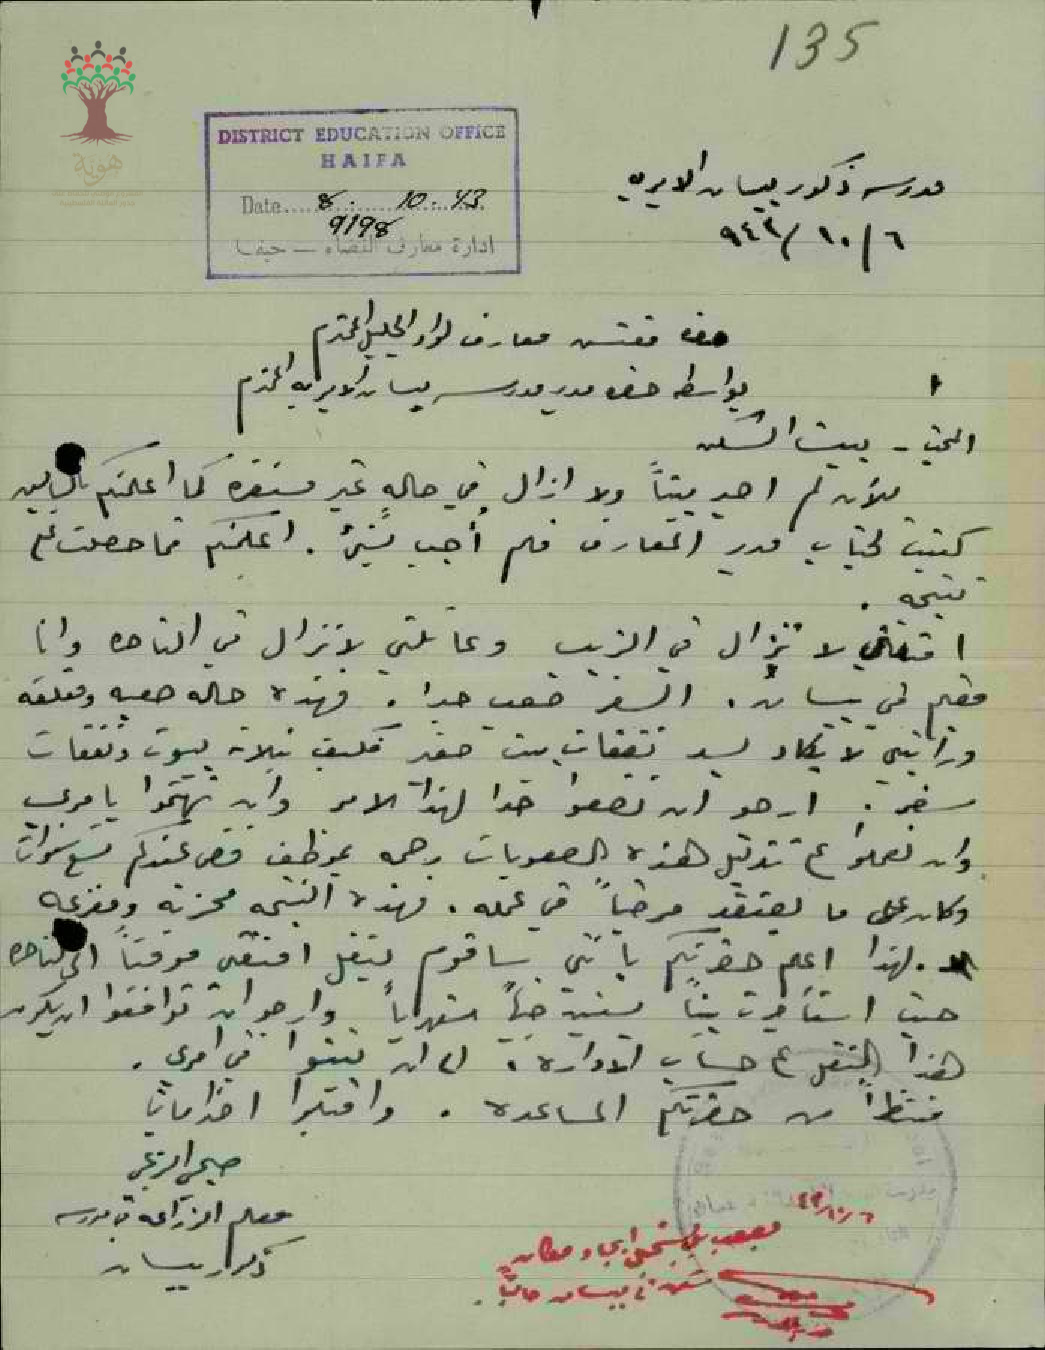 135
هوية
DISTRICT EDUCATION OFFICE
HAIFA
Date 8. 10. 43
9198
ادارة معارف القضاء — حيفا
مدرسة ذكور بيسان الاميرية
٦/١٠/٩٤٣
حضرة مفتش معارف لواء الجليل المحترم
بواسطة حضرة مدير مدرسة بيسان الاميرية المحترم
البحث - بيت السكن
للآن لم اجد بيتاً ولا ازال في حالةٍ غير مستقرة كما اعلمتكم بالسابق
كتبت لجناب مدير المعارف فلم أُجب بشيء. اعلمتكم فما حصلت على
نتيجة .
لا تزال في الزيب وعائلتي لا تزال في الناصرة وانا
مقيم في بيسان. السفر صعب جدا. فهذه حالة صعبة ومقلقة
وراتبي لا يكاد يسد نفقات بيت فكيف ثلاثة بيوت ونفقات
سفر. ارجو ان تضعوا حدا لهذا الامر وان تهتموا بامري
وان تعملوا على تذليل هذه الصعوبات رحمة بموظف قضى عندكم تسع سنوات
وكان على ما يعتقد مرضياً في عمله. فهذه النتيجة محزنة ومفزعة
لهذا اعلم حضرتكم بأنني سأقوم بنقل مؤقتاً الى الناصرة
حيث استأجرت بيتاً شهرياً وارجو ان توافقوا ان يكون
هذا النقل على حساب الادارة. الى ان تبتوا في امري.
منتظراً من حضرتكم المساعدة. واقبلوا احتراماتي
صبحي
معلم الزراعة في مدرسة
ذكور بيسان
٦/١٠/٤٣
ايجاد مكان
في بيسان حالياً.